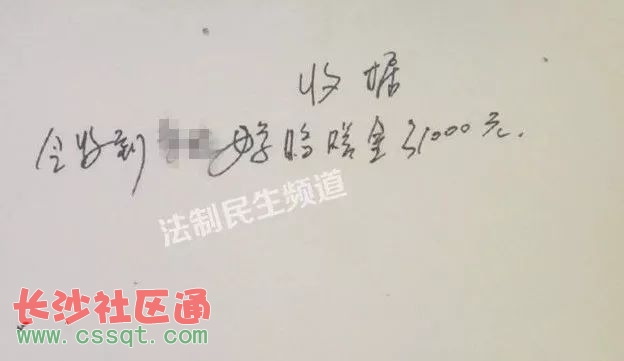 收据
今收到 金31000元.
法制民生频道
长沙社区通
www.cssqt.com